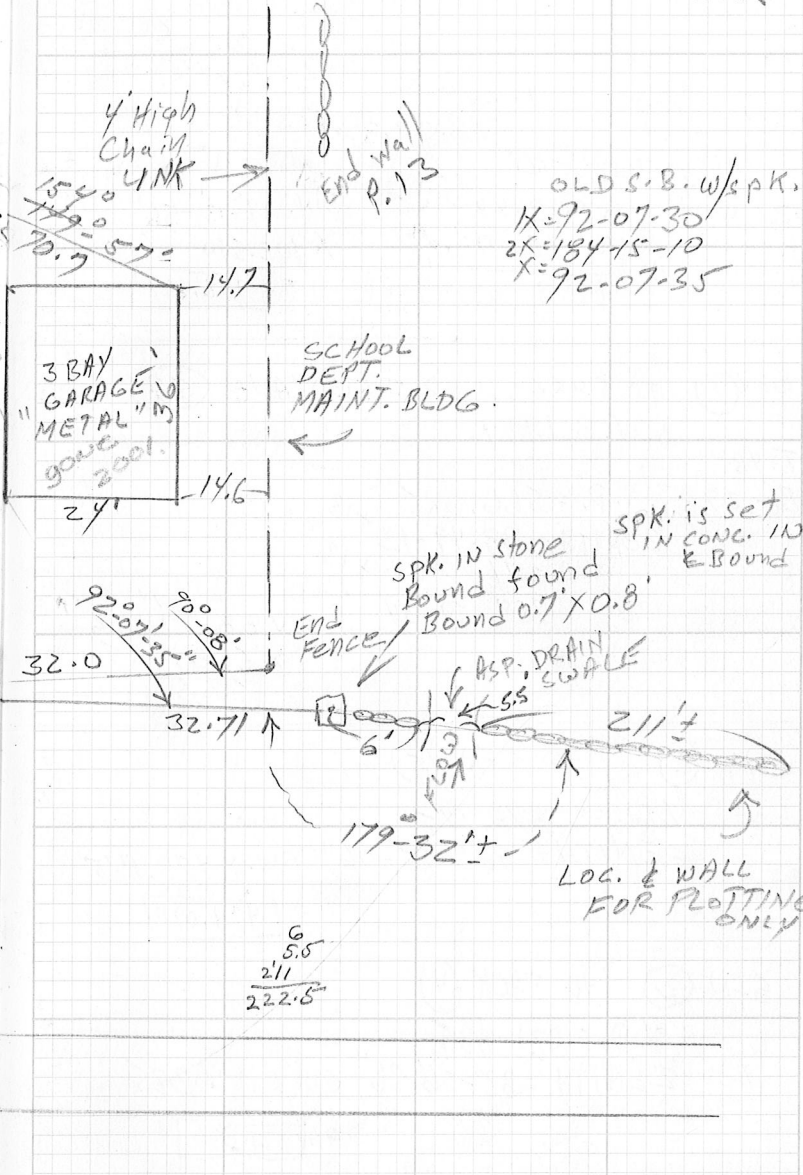 4' High
Chain
LINK
End Wall
P. 13
OLD S.B. w/spk.
1X=92-07-30
2X=184-15-10
X=92-07-35
154°
149°-57'
70.7
14.7
3 BAY
GARAGE
"METAL"
36'
gone
2001.
24'
14.6
SCHOOL
DEPT.
MAINT. BLDG.
SPK. is set
IN CONC. IN
₵ Bound
SPK. IN stone
Bound found
Bound 0.7' X 0.8'
92°-07'-35"
90°-08'
End
Fence
32.0
ASP. DRAIN
SWALE
5.5'
32.71
6'
211'±
179°-32'±
LOC. ₵ WALL
FOR PLOTTING
ONLY
6
5.5
211
222.5